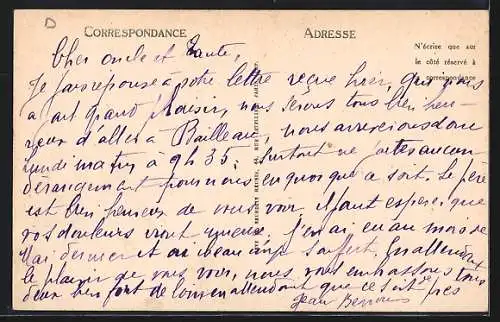 CORRESPONDANCE
ADRESSE
N'écrire que sur
le côté réservé à
la correspondance
D
Cher oncle et Tante,
Je fais réponse à votre lettre reçue hier, qui nous
a fait grand plaisir, nous serons tous bien heu-
reux d'aller à Bailleau, nous arriverons donc
lundi matin à 9h 35, surtout ne faites aucun
dérangement pour nous en quoi que ce soit. Le père
est bien heureux de vous voir. Il faut espérer que
vos douleurs vont mieux. J'en ai eu au mois de
Mai dernier et ai beaucoup souffert. En attendant
le plaisir de vous voir, nous vous embrassons tous
deux bien fort de loin en attendant que ce soit de près
Jean